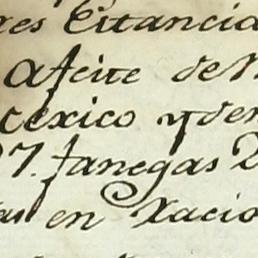 res Estancia
Afeite de
cexico y de
7. fanegas 2
en Xacio